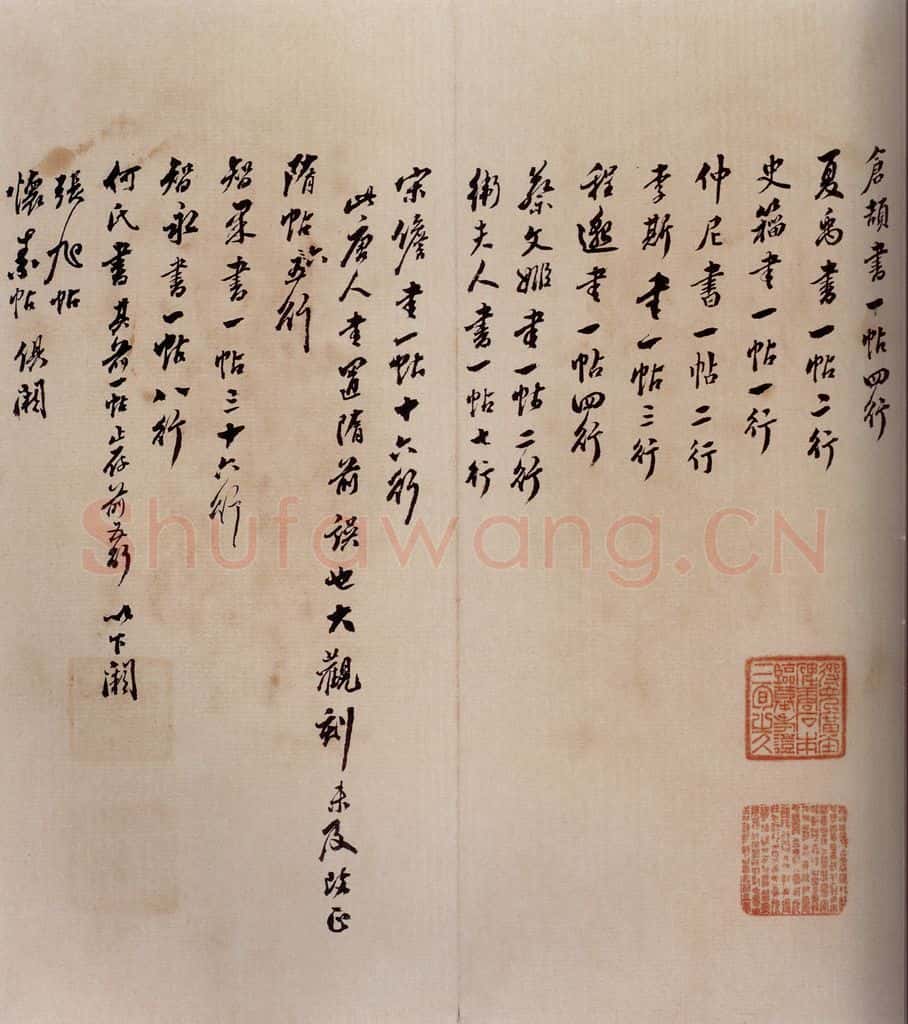 倉頡書一帖四行
夏禹書一帖二行
史籀書一帖一行
仲尼書一帖二行
李斯書一帖三行
程邈書一帖四行
蔡文姬書一帖二行
衛夫人書一帖七行
宋儋書一帖十六行
此唐人書置隋前誤也大觀刻未及改正
隋帖六行
智果書一帖三十六行
智永書一帖八行
何氏書其前一帖止存前五行以下闕
張旭帖
懷素帖俱闕
Shufawang.CN